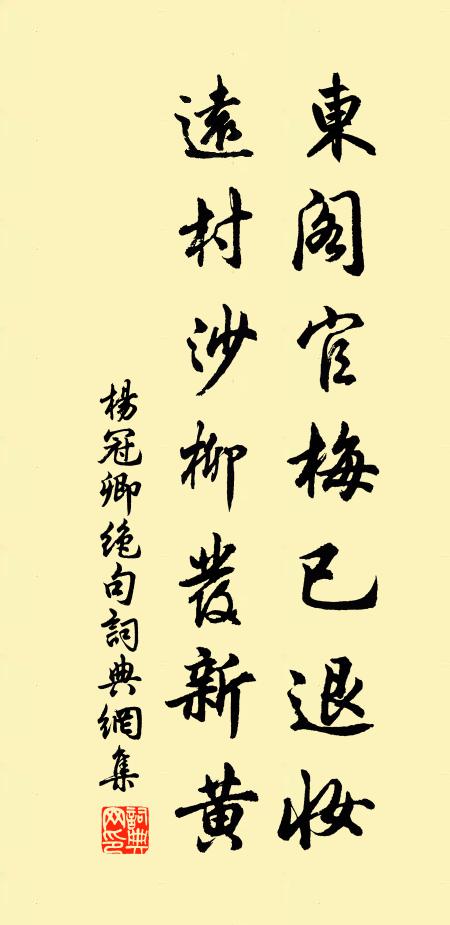 東閣官梅已退妝
遠村沙柳發新黃
楊冠卿絕句詞典網集
詞典網印